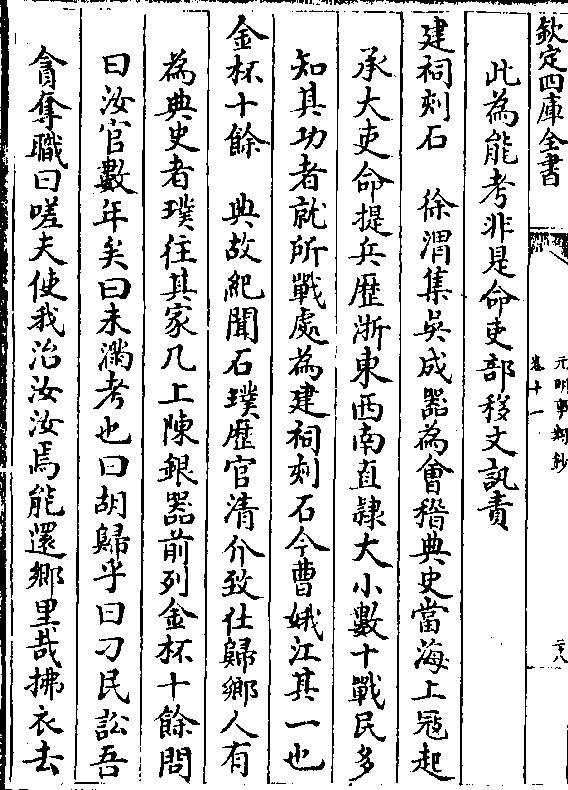 欽定四庫全書
元明事類鈔
卷十一
二八
此為能考非是命吏部移文訊責
建祠刻石　徐渭集吳成器為會稽典史當海上㓂起
承大吏命提兵歷浙東西南直隷大小數十戰民多
知其功者就所戰處為建祠刻石今曹娥江其一也
金杯十餘　典故紀聞石璞歷官清介致仕歸鄉人有
為典史者璞往其家几上陳銀器前列金杯十餘問
曰汝官數年矣曰未滿考也曰胡歸乎曰刁民訟吾
貪奪職曰嗟夫使我治汝汝焉能還鄉里哉拂衣去